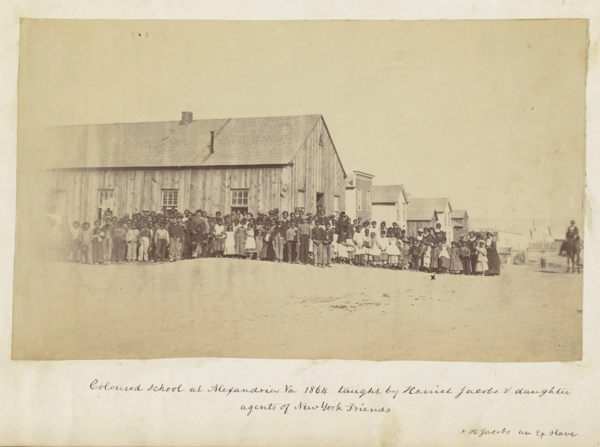 x
Coloured School at Alexandria Va 1864 taught by Harriet Jacobs & daughter
agents of New York Friends
x H Jacobs an Ex Slave